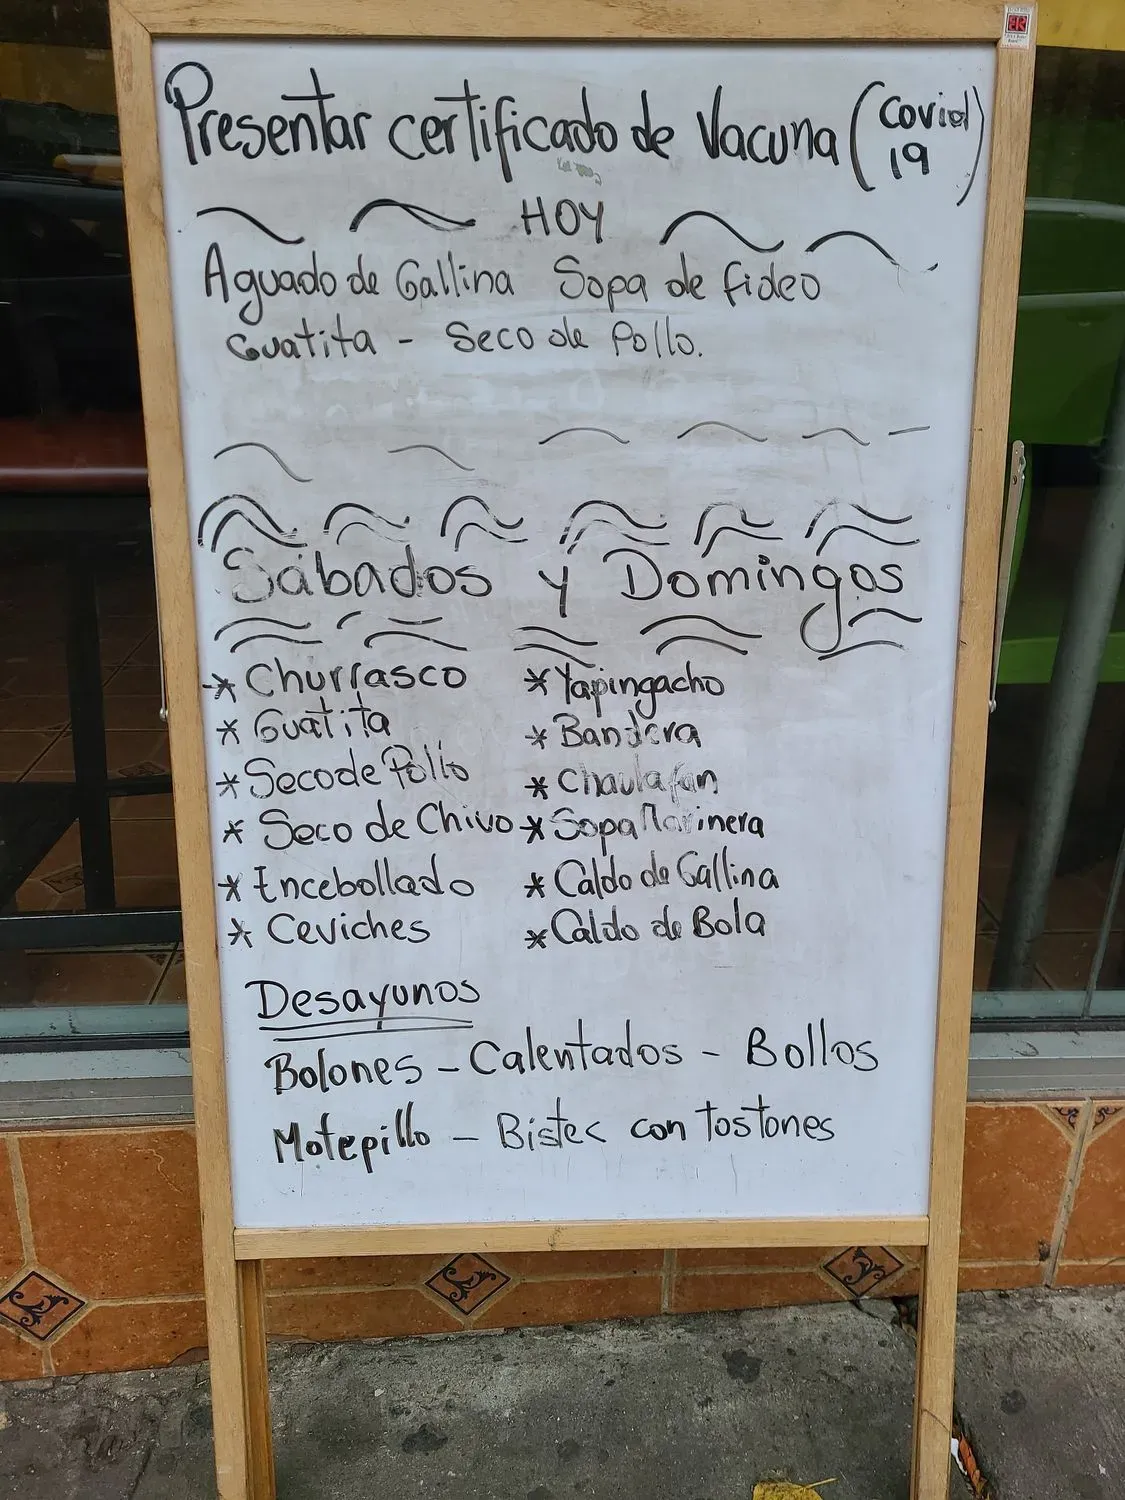 Presentar certificado de Vacuna (Covid 19)
HOY
Aguado de Gallina Sopa de fideo
Guatita - Seco de Pollo.
Sábados y Domingos
* Churrasco * Yapingacho
* Guatita * Bandera
* Seco de Pollo * Chaulafan
* Seco de Chivo * Sopa Marinera
* Encebollado * Caldo de Gallina
* Ceviches * Caldo de Bola
Desayunos
Bolones - Calentados - Bollos
Motepillo - Bistec con tostones